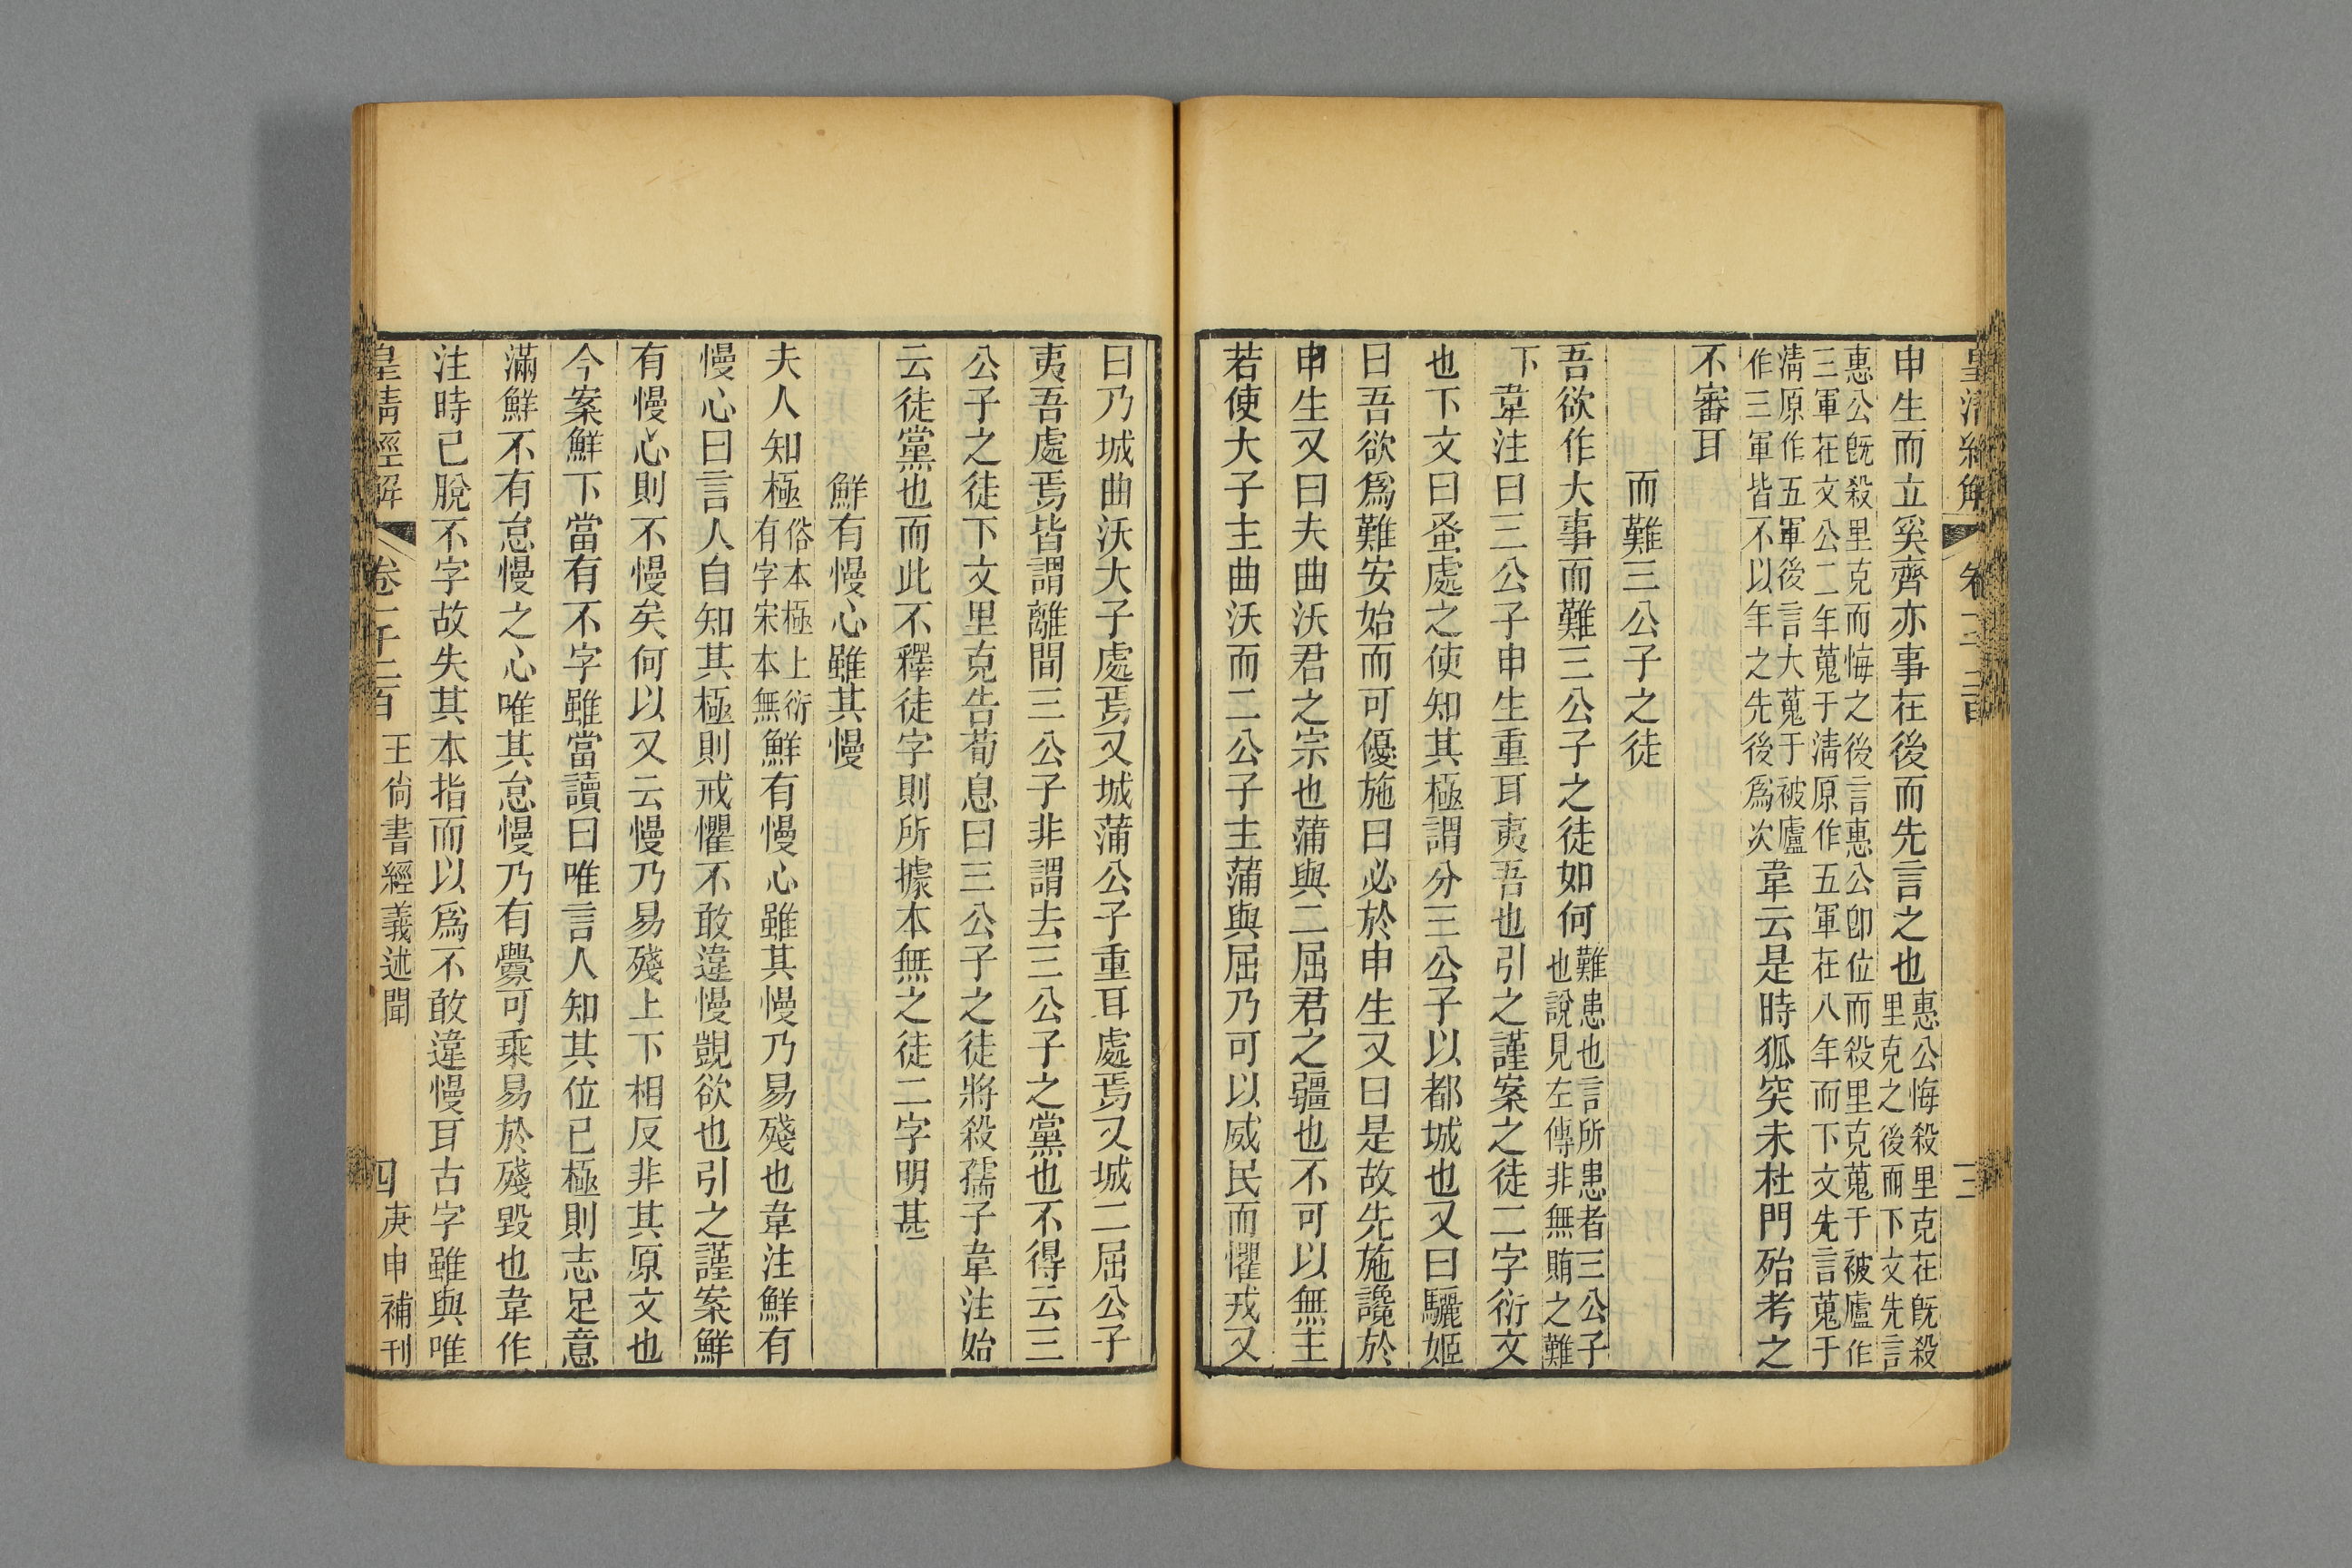 皇清經解 卷 三
申生而立奚齊亦事在後而先言之也惠公悔殺里克在既殺里克之後而下文先言
惠公既殺里克而悔之後言惠公卽位而殺里克蒐于被廬作三軍在文公二年蒐于淸原作五軍在八年而下文先言蒐于
淸原作五軍後言大蒐于被廬作三軍皆不以年之先後爲次韋云是時狐突未杜門殆考之
不審耳
而難三公子之徒
吾欲作大事而難三公子之徒如何難患也言所患者三公子也說見左傳非無賄之難
下韋注曰三公子申生重耳夷吾也引之謹案之徒二字衍文
也下文曰蚤處之使知其極謂分三公子以都城也又曰驪姬
曰吾欲爲難安始而可優施曰必於申生又曰是故先施讒於
申生又曰夫曲沃君之宗也蒲與二屈君之疆也不可以無主
若使大子主曲沃而二公子主蒲與屈乃可以威民而懼戎又
曰乃城曲沃大子處焉又城蒲公子重耳處焉又城二屈公子
夷吾處焉皆謂離間三公子非謂去三公子之黨也不得云三
公子之徒下文里克告荀息曰三公子之徒將殺孺子韋注始
云徒黨也而此不釋徒字則所據本無之徒二字明甚
鮮有慢心雖其慢
夫人知極俗本極上衍有字宋本無鮮有慢心雖其慢乃易殘也韋注鮮有
慢心曰言人自知其極則戒懼不敢違慢覬欲也引之謹案鮮
有慢心則不慢矣何以又云慢乃易殘上下相反非其原文也
今案鮮下當有不字雖當讀曰唯言人知其位已極則志足意
滿鮮不有怠慢之心唯其怠慢乃有釁可乘易於殘毀也韋作
注時已脫不字故失其本指而以爲不敢違慢耳古字雖與唯
皇清經解 卷一千二百 王尙書經義述聞 四 庚申補刊